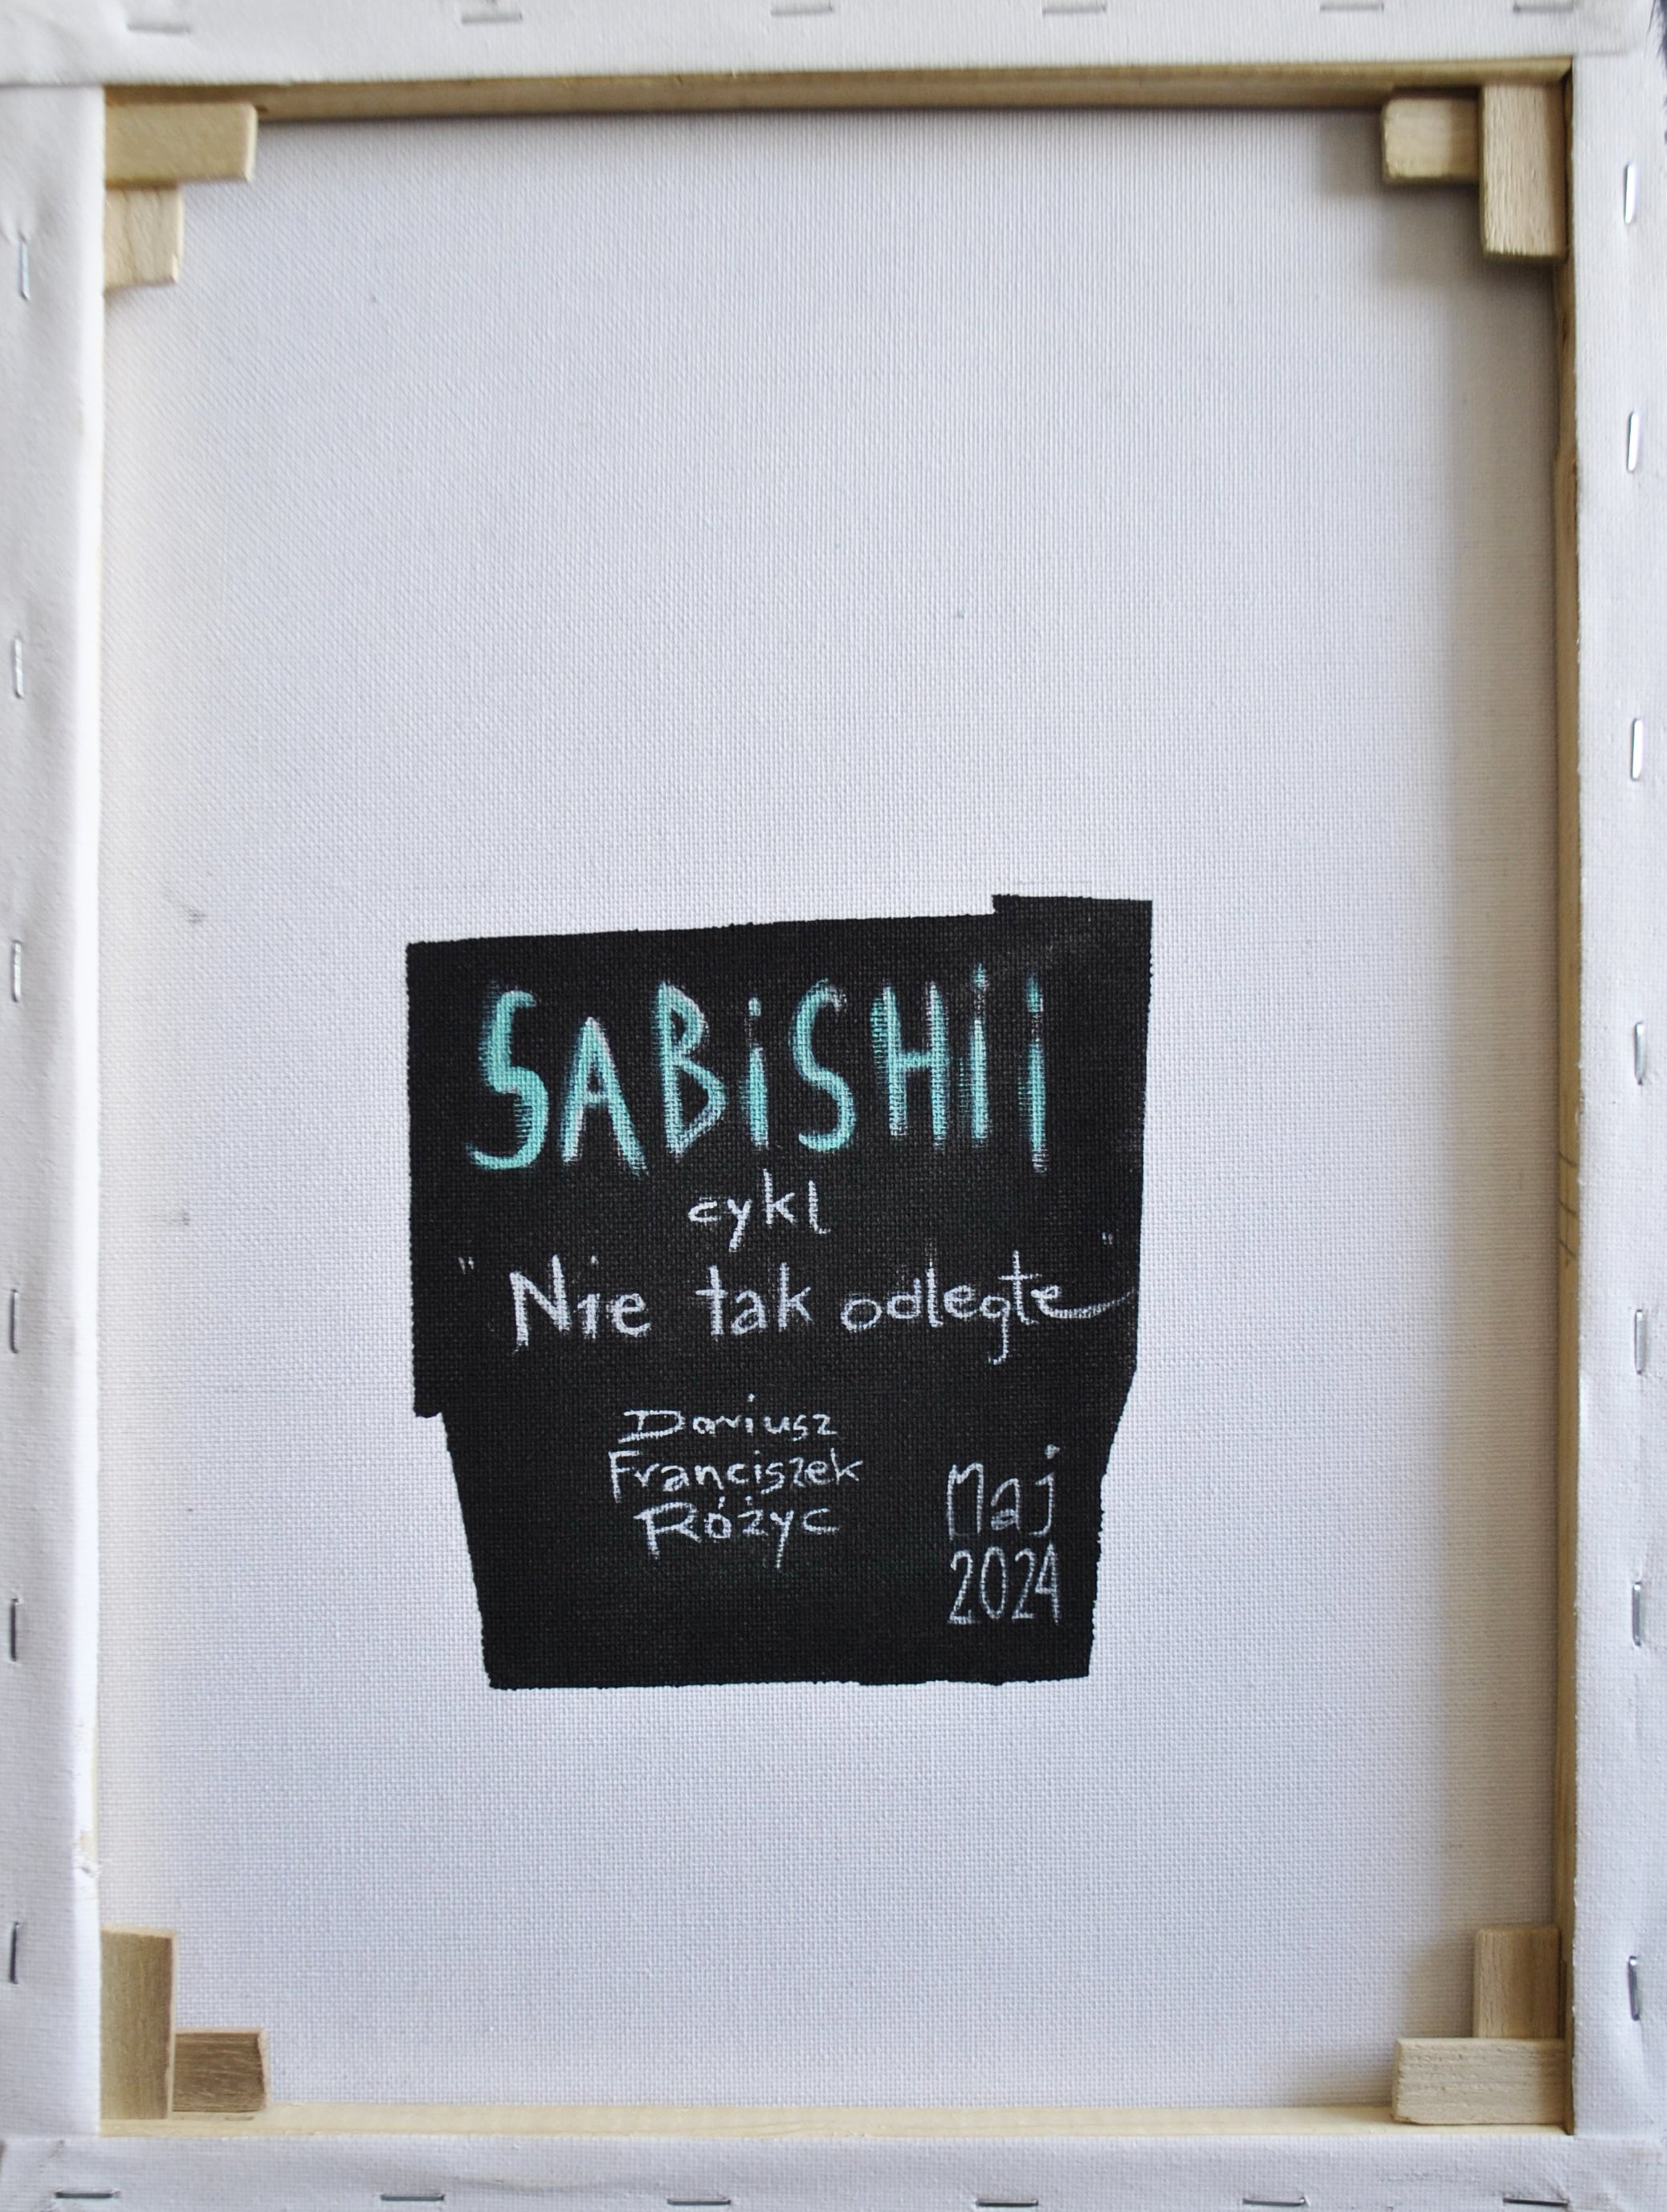 SABiSHii
cykl
"Nie tak odległe"
Dariusz
Franciszek
Różyc
Maj
2024